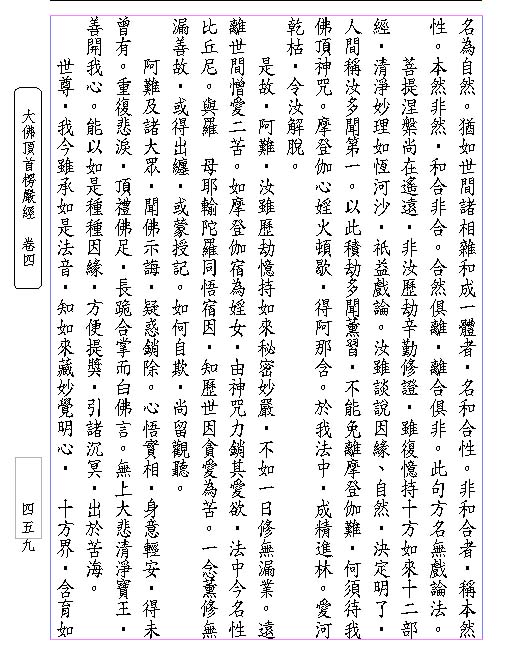 名為自然。猶如世間諸相雜和成一體者，名和合性。非和合者，稱本然
性。本然非然，和合非合。合然俱離，離合俱非。此句方名無戲論法。
菩提涅槃尚在遙遠，非汝歷劫辛勤修證，雖復憶持十方如來十二部
經，清淨妙理如恆河沙，祇益戲論。汝雖談說因緣、自然，決定明了，
人間稱汝多聞第一。以此積劫多聞薰習，不能免離摩登伽難，何須待我
佛頂神咒。摩登伽心婬火頓歇，得阿那含。於我法中，成精進林。愛河
乾枯，令汝解脫。
是故，阿難，汝雖歷劫憶持如來秘密妙嚴，不如一日修無漏業。遠
離世間憎愛二苦。如摩登伽宿為婬女，由神咒力銷其愛欲，法中今名性
比丘尼。與羅　母耶輸陀羅同悟宿因，知歷世因貪愛為苦。一念薰修無
漏善故，或得出纏，或蒙授記。如何自欺，尚留觀聽。
阿難及諸大眾，聞佛示誨，疑惑銷除。心悟實相，身意輕安，得未
曾有。重復悲淚，頂禮佛足，長跪合掌而白佛言。無上大悲清淨寶王，
善開我心。能以如是種種因緣，方便提獎，引諸沉冥，出於苦海。
世尊，我今雖承如是法音，知如來藏妙覺明心，　十方界，含育如
大佛頂首楞嚴經　卷四
四五九